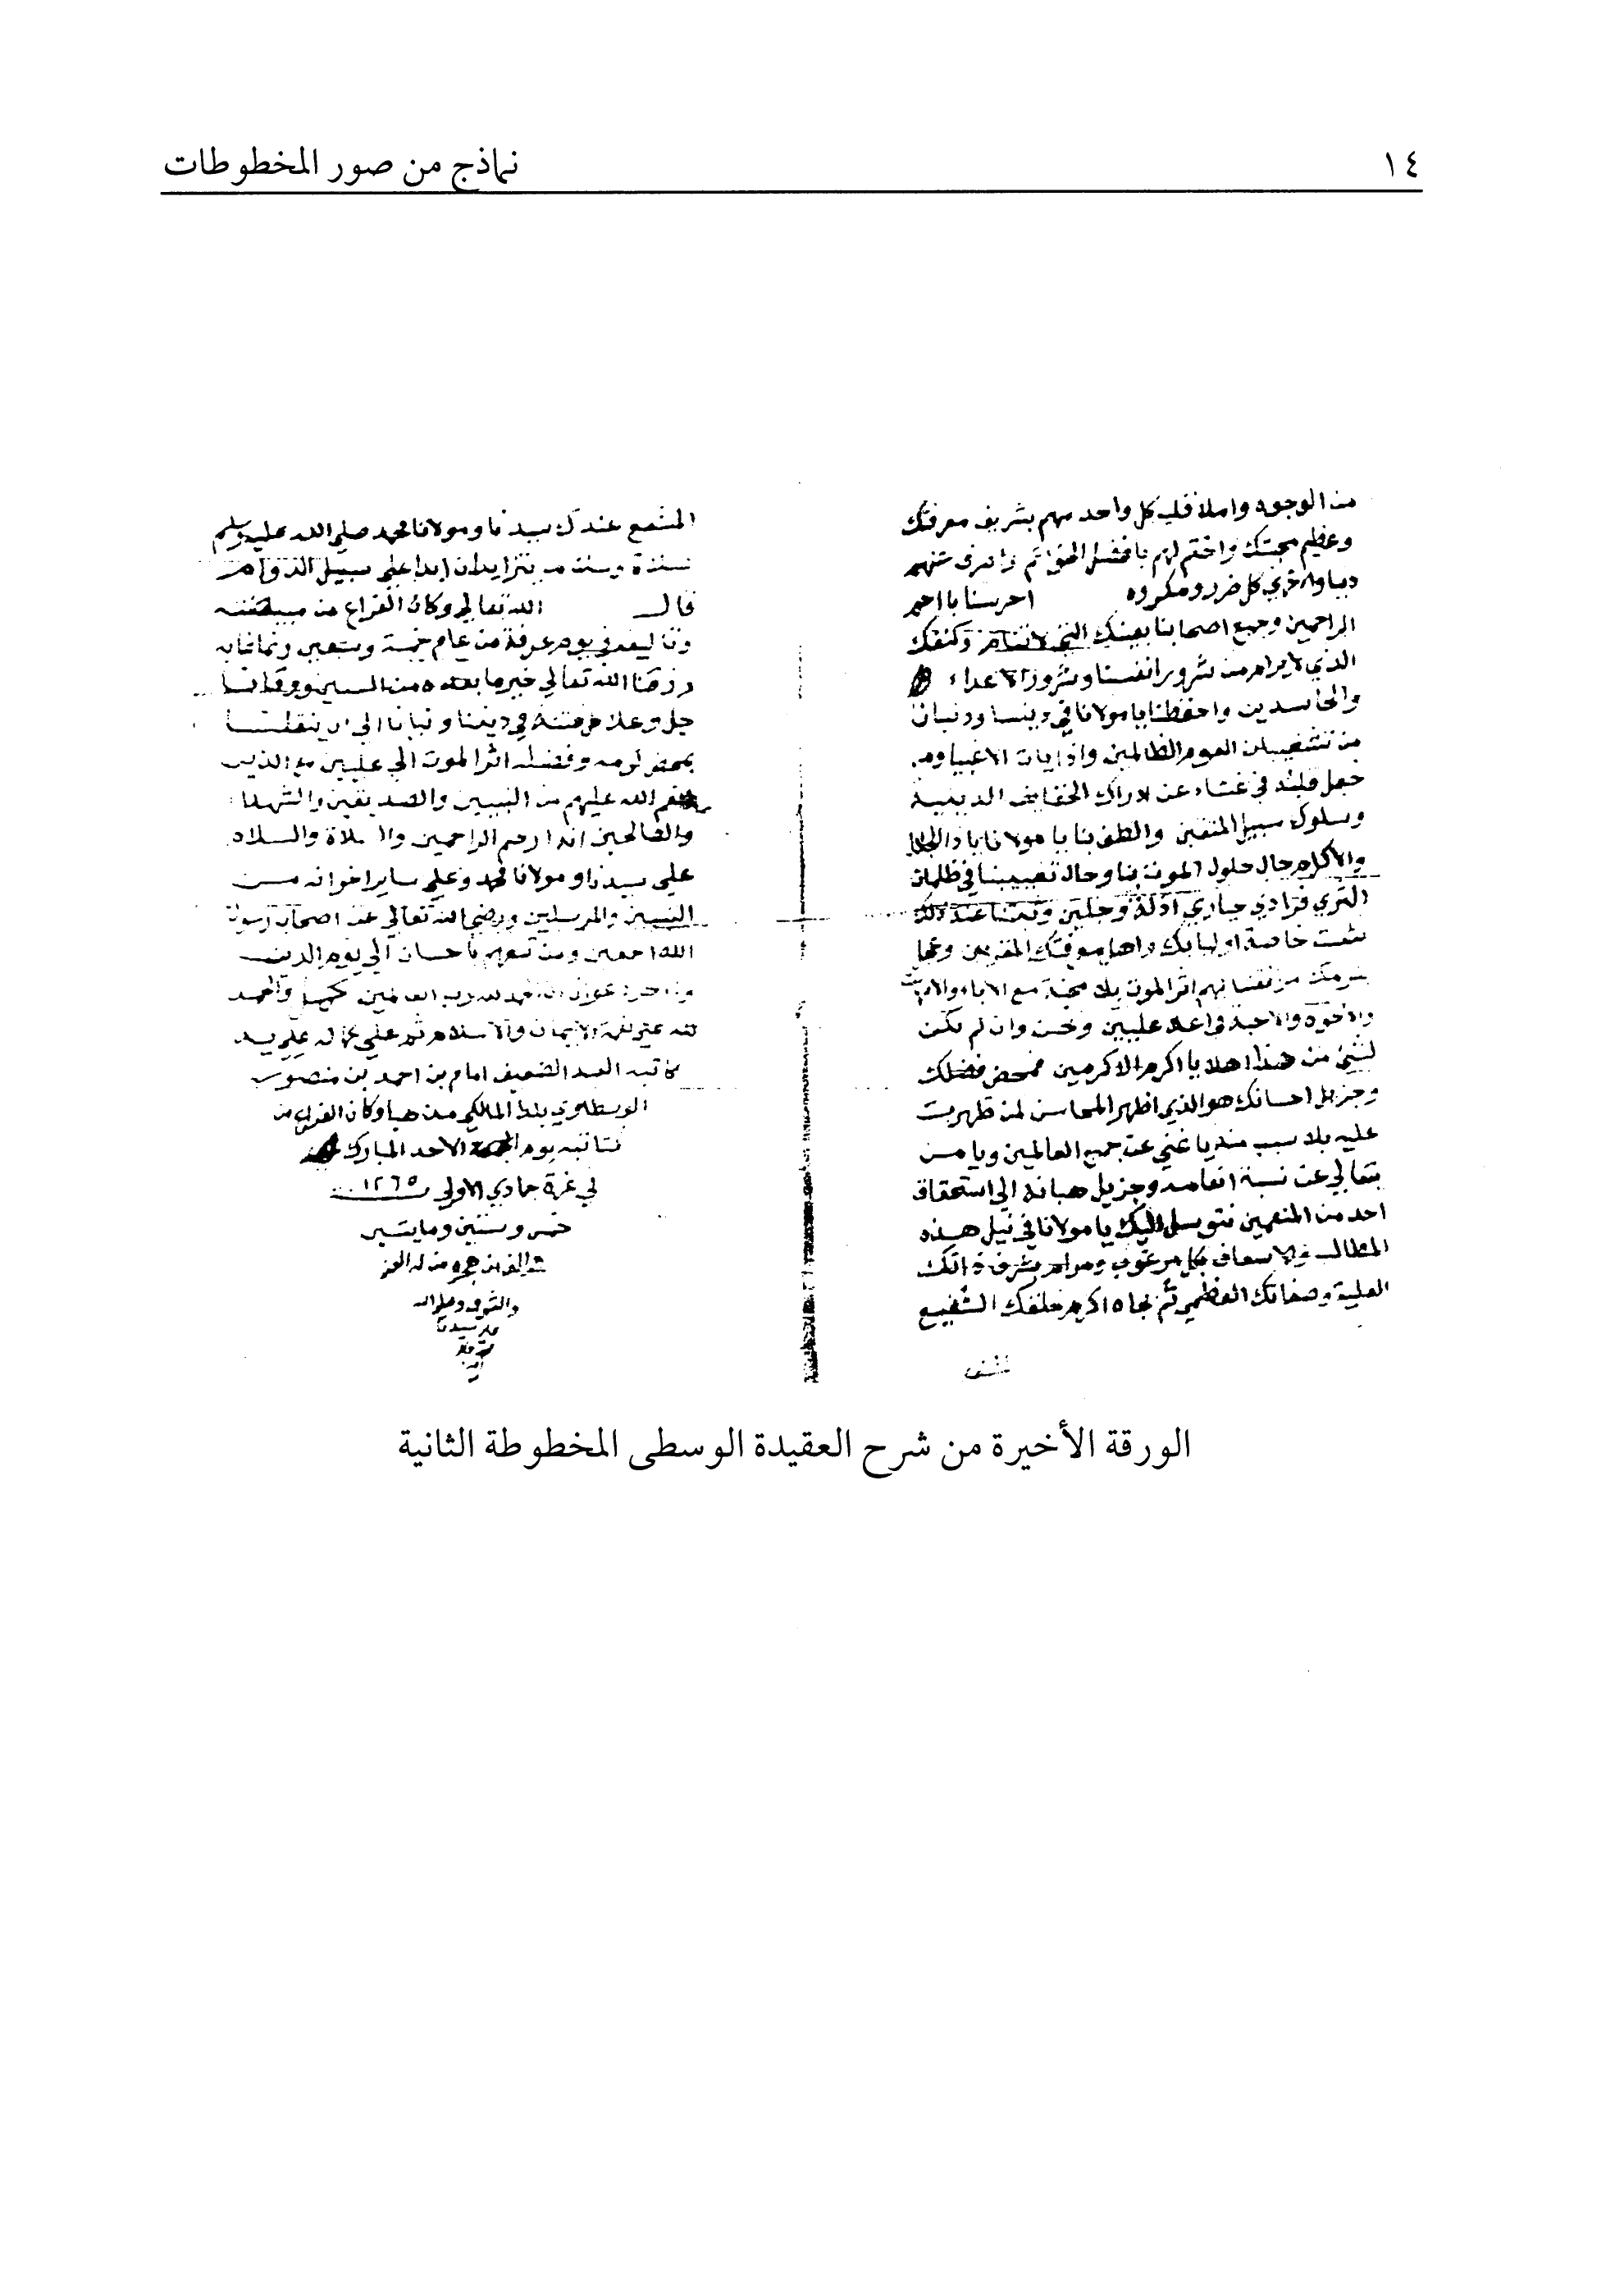 ١٤
نماذج من صور المخطوطات
من الوجوه واملا قلب كل واحد منهم بشريف معرفتك
وعظيم محبتك واختم لهم بافضل الخواتم واصرف عنهم
دنيا واخرى كل ضرر ومكروه احرسنا يا ارحم
الراحمين وجميع اصحابنا بعينك التي لا تنام وكنفك
الذي لا يرام من شرور انفسنا وشرور الاعداء
والحاسدين واحفظنا يا مولانا في ديننا ودنيانا
من الظالمين واذايات الاغبيا
جعل قلبه في غشاء عن ادراك الحقايق الدينية
وسلوك سبيل المتقين والطف بنا يا مولانا يا ذا الجلال
والاكرام حال حلول الموت بنا وحال تغييبنا في ظلمات
الثرى فرادى حيارى اذلة وجلين وثبتنا عند ذلك
خاصة اوليائك معرفتك المقربين
اثر الموت بلا محنة مع الاباء
والاخوة والاحبة في اعلا عليين ونحن وان لم نكن
لشيئ من هذا اهلا يا اكرم الاكرمين فمحض فضلك
وجزيل احسانك هو الذي اظهر المحاسن لمن ظهرت
عليه بلا سبب منه يا غني عن جميع العالمين ويا من
يتعالي عن نسبة انعامه وجزيل هباته الى استحقاق
احد من المنعمين نتوسل اليك يا مولانا في نيل هذه
المطالب والاسعاف بكل مرغوب ومرام بشرف ذاتك
العلية وصفاتك العظمي ثم بجاه اكرم خلقك الشفيع
المشفع
المشفع عندك سيدنا ومولانا محمد صلى الله عليه وسلم
يتزايدان ابدا على سبيل الدوام
قال الله تعالى وكان الفراغ من
وتاليفه في يوم عرفة من عام خمسة وسبعين وثمانمايه
رزقنا الله تعالى خير ما بعده من السنين ووقانا
جل وعلا من فتنة في ديننا ودنيانا الى ان ينقلنا
بمحض كرمه وفضله اثر الموت الي عليين مع الذين
انعم الله عليهم من النبيين والصديقين والشهدا
والصالحين انه ارحم الراحمين والصلاة والسلام
على سيدنا ومولانا محمد وعلى ساير اخوانه من
النبيين والمرسلين ورضي الله تعالى عن اصحاب رسول
الله اجمعين ومن تبعهم باحسان الي يوم الدين
واخر دعوانا ان الحمد لله رب العالمين والحمد
لله على نعمة الايمان والاسلام ثم على كماله على يد
كاتبه العبد الضعيف امام بن احمد بن منصور
بلدا المالكي مذهبا وكان الفراغ من
كتابته يوم الاحد المبارك
في غرة جمادي الاولى سنة ١٢٦٥
خمس وستين ومايتين
والف من هجرة من له العز
والشرف وصلى الله
على سيدنا
محمد وعلى
اله
الورقة الأخيرة من شرح العقيدة الوسطى المخطوطة الثانية